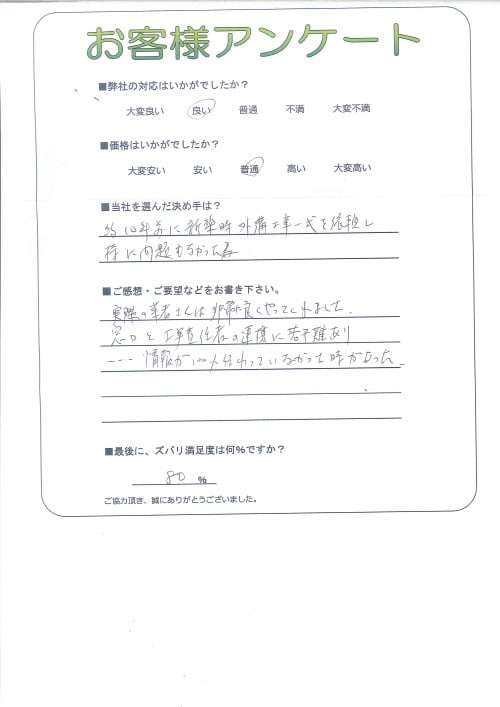 お客様アンケート
■弊社の対応はいかがでしたか？
大変良い 良い 普通 不満 大変不満
■価格はいかがでしたか？
大変安い 安い 普通 高い 大変高い
■当社を選んだ決め手は？
約10年前に新築時外溝工事一式を依頼し
特に問題もなかった為
■ご感想・ご要望などをお書き下さい。
実際の業者さんは非常に良くやってくれました.
窓口と工事責任者の連携に若干難あり
---- 情報が100%伝わっていなかった時があった.
■最後に、ズバリ満足度は何%ですか？
80 %
ご協力頂き、誠にありがとうございました。